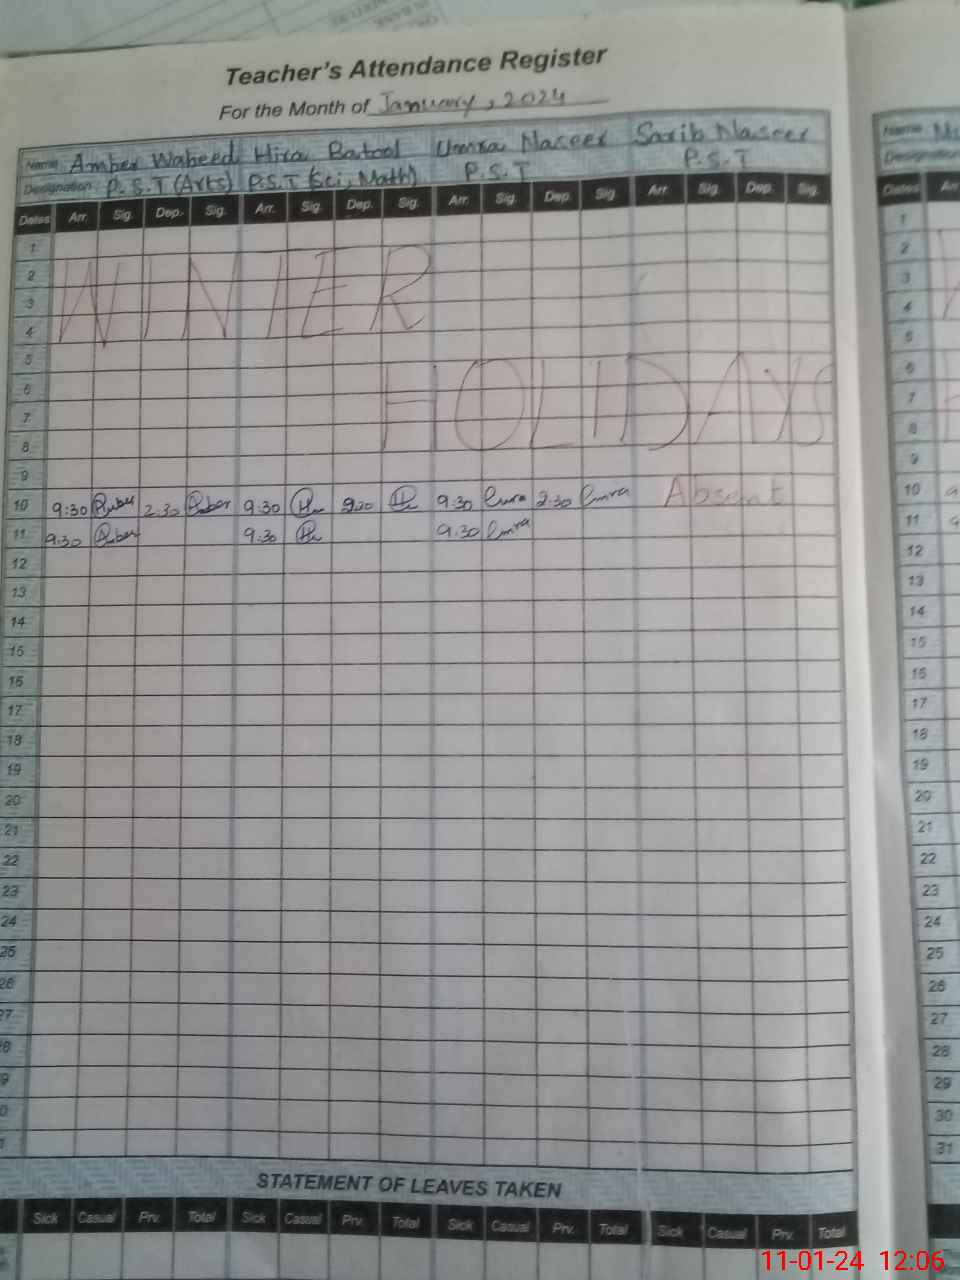 Teacher's Attendance Register
For the Month of January, 2024
Name Amber Waheed Hira Batool Umra Naseer Sarib Naseer
Designation P.S.T (Arts) P.S.T (Sci, Math) P.S.T P.S.T
Dates Arr. Sig. Dep. Sig. Arr. Sig. Dep. Sig. Arr. Sig. Dep. Sig. Arr. Sig. Dep. Sig.
1
2
3
4
WINTER
5
6
7
8
HOLIDAYS
9
10 9:30 Amber 2:30 Amber 9:30 2:30 9:30 Umra 2:30 Umra Absent
11 9:30 Amber 9:30 9:30 Umra
12
13
14
15
16
17
18
19
20
21
22
23
24
25
26
27
STATEMENT OF LEAVES TAKEN
Sick Casual Prv. Total Sick Casual Prv. Total Sick Casual Prv. Total Sick Casual Prv. Total
Name
Designation
Dates
1
2
3
4
5
6
7
8
9
10
11
12
13
14
15
16
17
18
19
20
21
22
23
24
25
26
27
28
29
30
31
11-01-24 12:06